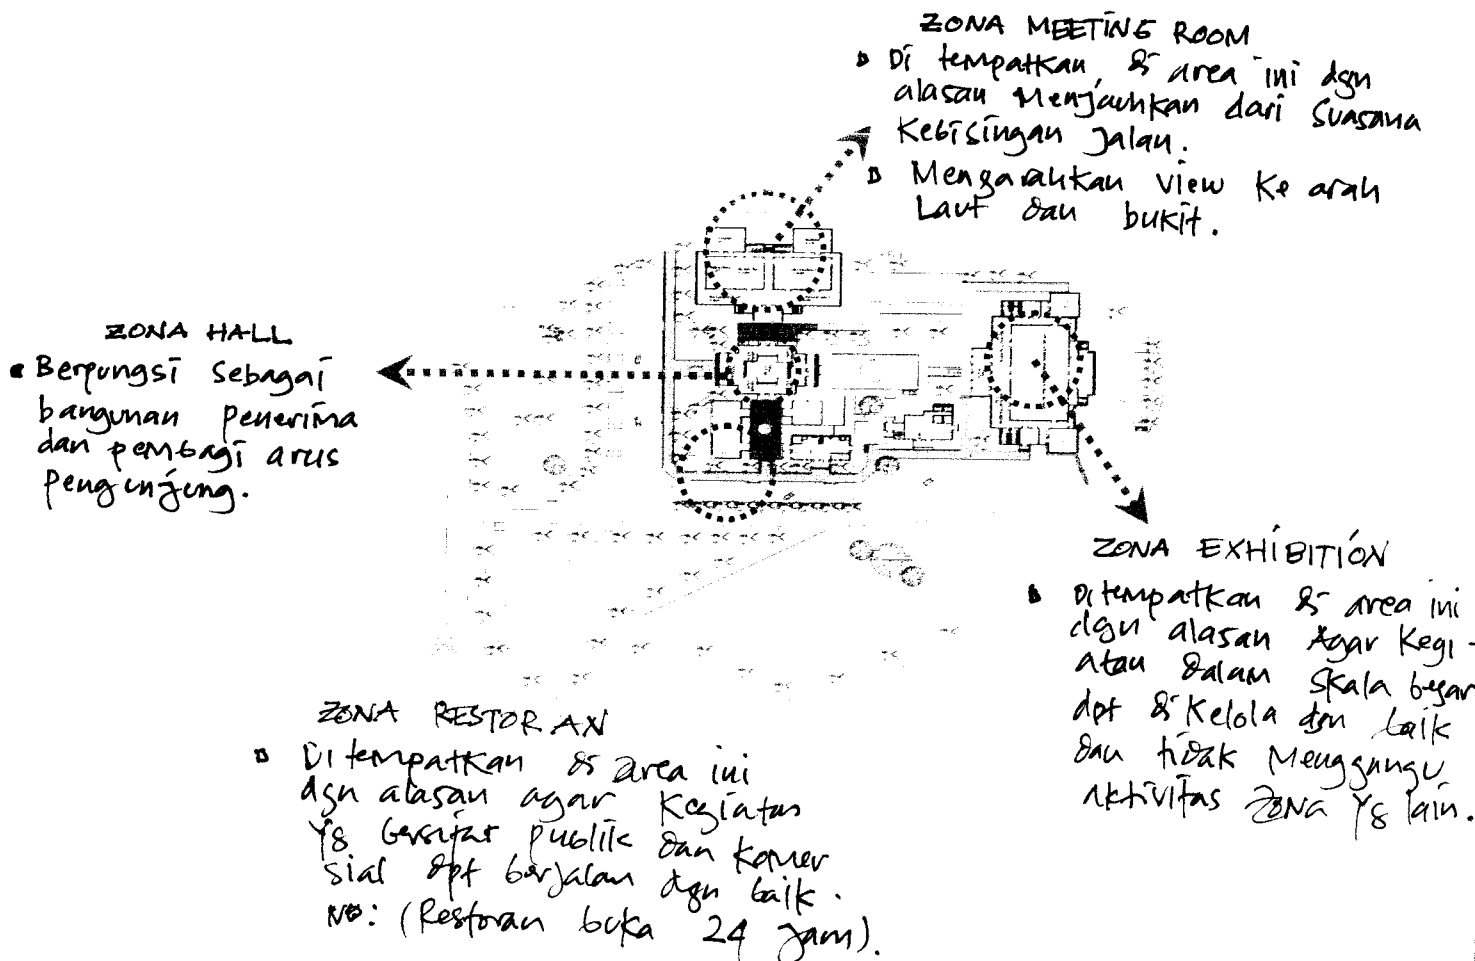 ZONA MEETING ROOM
Di tempatkan di area ini dgn
alasan Menjauhkan dari Suasana
Kebisingan Jalan.
Mengarahkan View Ke arah
Laut dan bukit.
ZONA HALL
Berpungsi Sebagai
bangunan penerima
dan pembagi arus
Pengunjung.
ZONA EXHIBITION
Ditempatkan di area ini
dgn alasan Agar Kegi-
atan dalam Skala besar
dpt di Kelola dgn baik
dan tidak Menggangu
aktivitas ZONA Yg lain.
ZONA RESTORAN
Di tempatkan di area ini
dgn alasan agar Kegiatan
Yg bersifat publik dan Komer
sial dpt berjalan dgn baik.
NB: (Restoran buka 24 Jam).